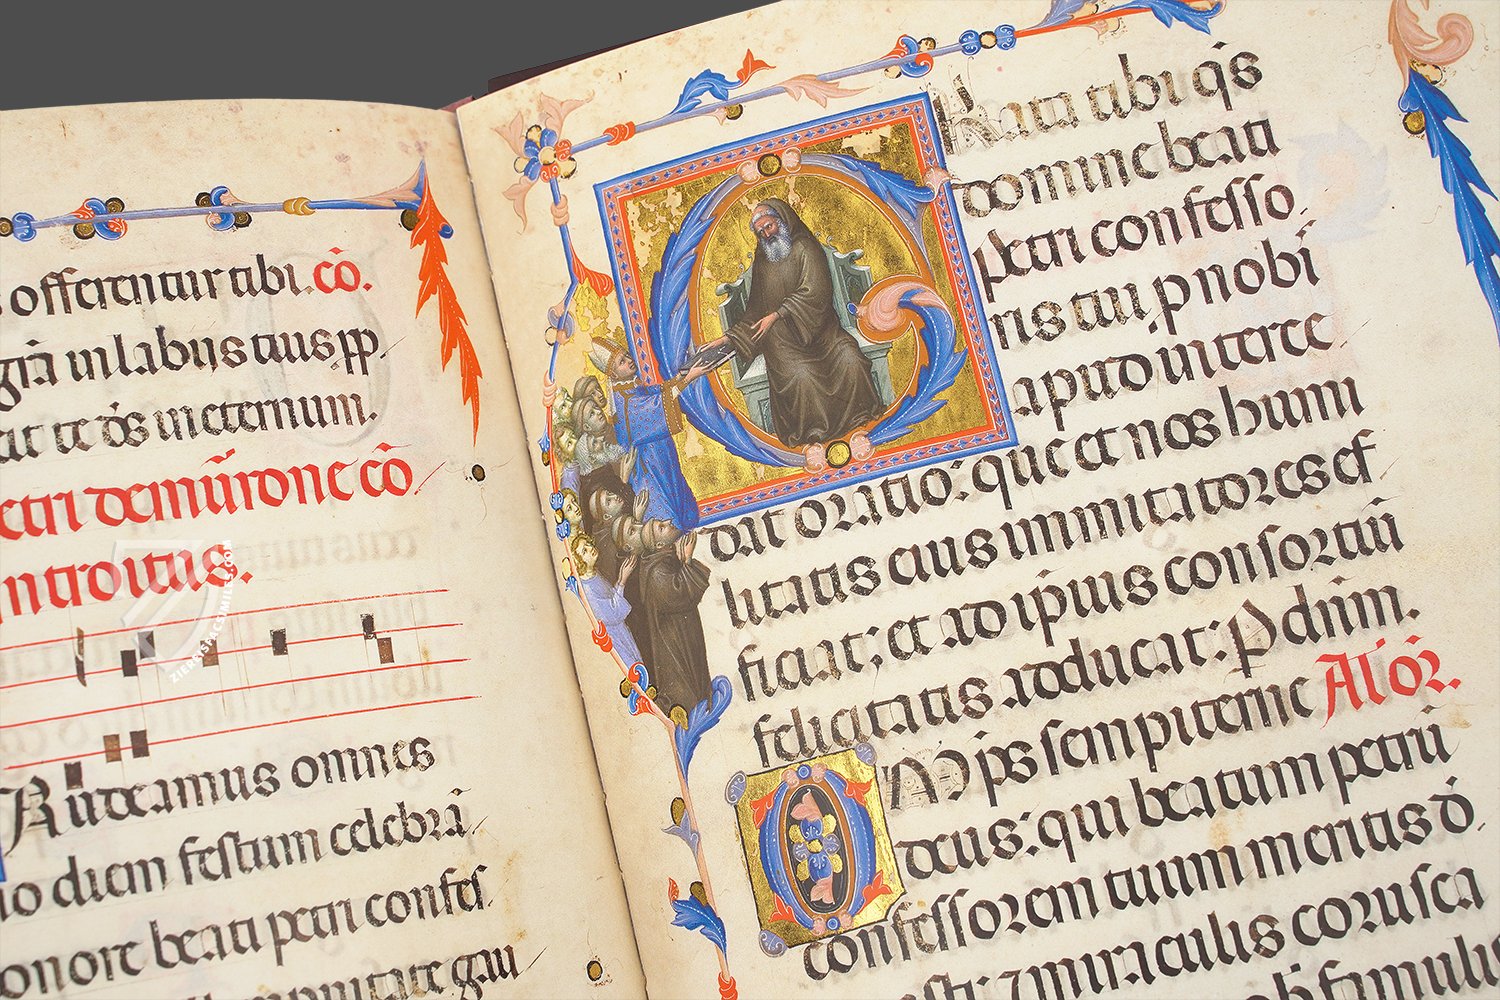 s offerentur tibi. cõ.
grã in labijs tuis pp
it te ds̃ in eternum.
etri de mũrone cõ
ntroitus.
Audeamus omnes
diem festum celebrã
onore beati petri confes
gau
Rata tibi qs̃
domine beati
petri confesso
ris tui p nobi
apud interce
dat oratio: que et nos humi
litatis eius immitatores ef
ficiat: et ad ip̃ius consortiũ
felicitatis adducat: P dñm.
Al' or̃.
Mp̃s sempiterne
deus: qui beatum petrũ
confessorem tuum meritis &
miraculis corusca
famulis
ZIEREISFACSIMILES.COM